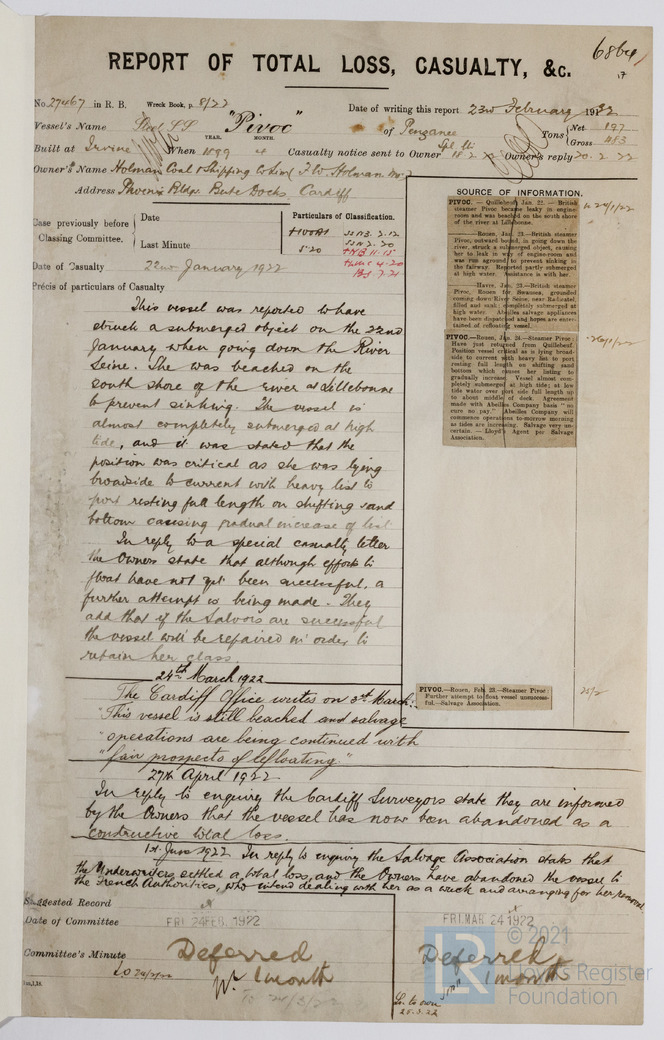 REPORT OF TOTAL LOSS, CASUALTY, &c.
No. 27467 in R. B. Wreck Book, p. 8/22
Date of writing this report 23rd February 1922
Vessel's Name Steel SS "Pivoc" of Penzance
Tons { Net 197
Gross 463
YEAR. MONTH.
Built at Irvine When 1899 4 Casualty notice sent to Owner 18.2.22 Owner's reply 20.2.22
Owner's Name Holman Coal & Shipping Co Lim (F. W. Holman Mr)
Address Phoenix Bldgs. Bute Docks, Cardiff
Case previously before Classing Committee.
Date
Last Minute
Particulars of Classification.
+100A1
5.20
Date of Casualty 22nd January 1922
Précis of particulars of Casualty
This vessel was reported to have
struck a submerged object on the 22nd
January when going down the River
Seine. She was beached on the
south shore of the river at Lillebonne
to prevent sinking. The vessel is
almost completely submerged at high
tide, and it was stated that the
position was critical as she was lying
broadside to current with heavy list to
port resting full length on shifting sand
bottom causing gradual increase of list
In reply to a special casualty letter
the Owners state that although efforts to
float have not yet been successful, a
further attempt is being made. They
add that if the Salvors are successful
the vessel will be repaired in order to
retain her class.
24th March 1922
The Cardiff Office writes on 3rd March:
"This vessel is still beached and salvage
"operations are being continued with
"fair prospects of refloating."
27th April 1922
In reply to enquiry the Cardiff Surveyors state they are informed
by the Owners that the vessel has now been abandoned as a
constructive total loss.
1st June 1922 In reply to enquiry the Salvage Association states that
the Underwriters settled a total loss, and the Owners have abandoned the vessel to
the French Authorities, who intend dealing with her as a wreck and arranging for her removal
SOURCE OF INFORMATION.
PIVOC. - Quillebeuf, Jan. 22. - British
steamer Pivoc became leaky in engine-
room and was beached on the south shore
of the river at Lillebonne.
— Rouen, Jan. 23. — British steamer
Pivoc, outward bound, in going down the
river, struck a submerged object, causing
her to leak in way of engine-room and
was run aground to prevent sinking in
the fairway. Reported partly submerged
at high water. Assistance is with her.
— Havre, Jan. 23. — British steamer
Pivoc, Rouen for Swansea, grounded
coming down River Seine, near Radicatel,
filled and sank; completely submerged at
high water. Abeilles salvage appliances
have been dispatched and hopes are enter-
tained of refloating vessel.
PIVOC.—Rouen, Jan. 24.—Steamer Pivoc:
Have just returned from Quillebeuf.
Position vessel critical as is lying broad-
side to current with heavy list to port,
resting full length on shifting sand
bottom which causes her listing to
gradually increase. Vessel almost com-
pletely submerged at high tide; at low
tide water over port side full length up
to about middle of deck. Agreement
made with Abeilles Company basis "no
cure no pay." Abeilles Company will
commence operations to-morrow morning
as tides are increasing. Salvage very un-
certain. — Lloyd's Agent per Salvage
Association.
PIVOC.—Rouen, Feb. 23.—Steamer Pivoc:
Further attempt to float vessel unsuccess-
ful.—Salvage Association.
25/2
Suggested Record
Date of Committee FRI 24 FEB. 1922
FRI. MAR 24 1922
Committee's Minute
Deferred
1 month
To 24/3/22
Deferred
1 month
© 2021
LR
Lloyd's Register
Foundation